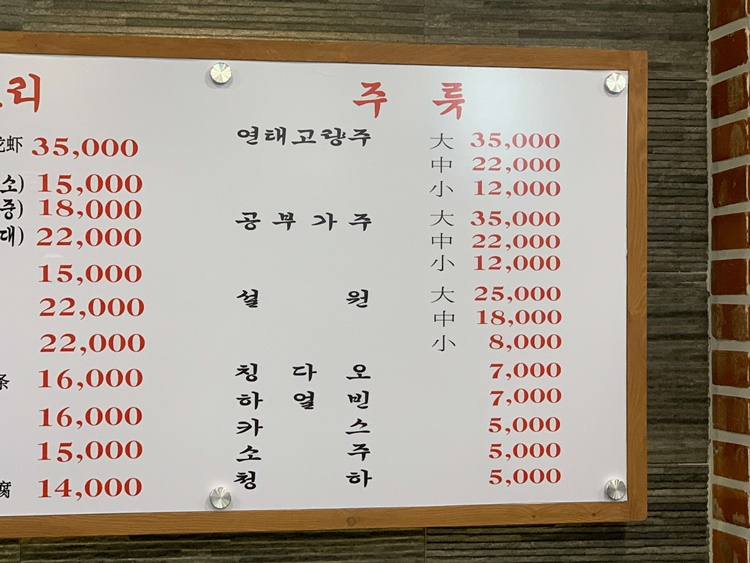 리
虾 35,000
소) 15,000
중) 18,000
대) 22,000
15,000
22,000
22,000
条 16,000
16,000
15,000
腐 14,000
주 류
연태고량주 大 35,000
中 22,000
小 12,000
공부가주 大 35,000
中 22,000
小 12,000
설원 大 25,000
中 18,000
小 8,000
칭다오 7,000
하얼빈 7,000
카스 5,000
소주 5,000
청하 5,000